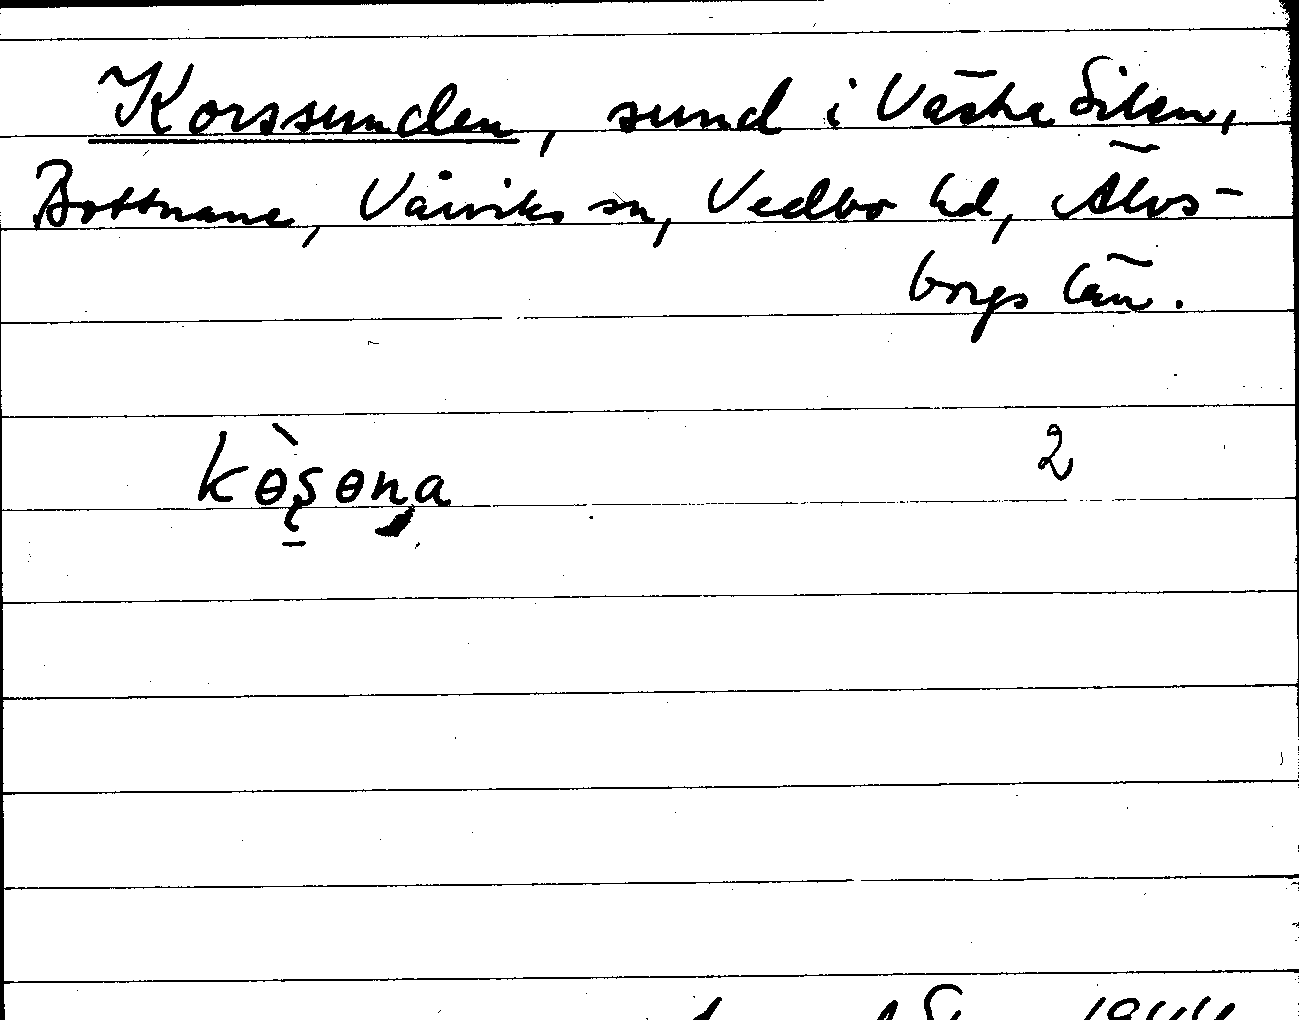 Korssunden, sund i Västra Silen,
Bottnane, Vårviks sn, Vedbo hd, Älvs-
borgs län.
kɵ̀ʂɵn̥a 2